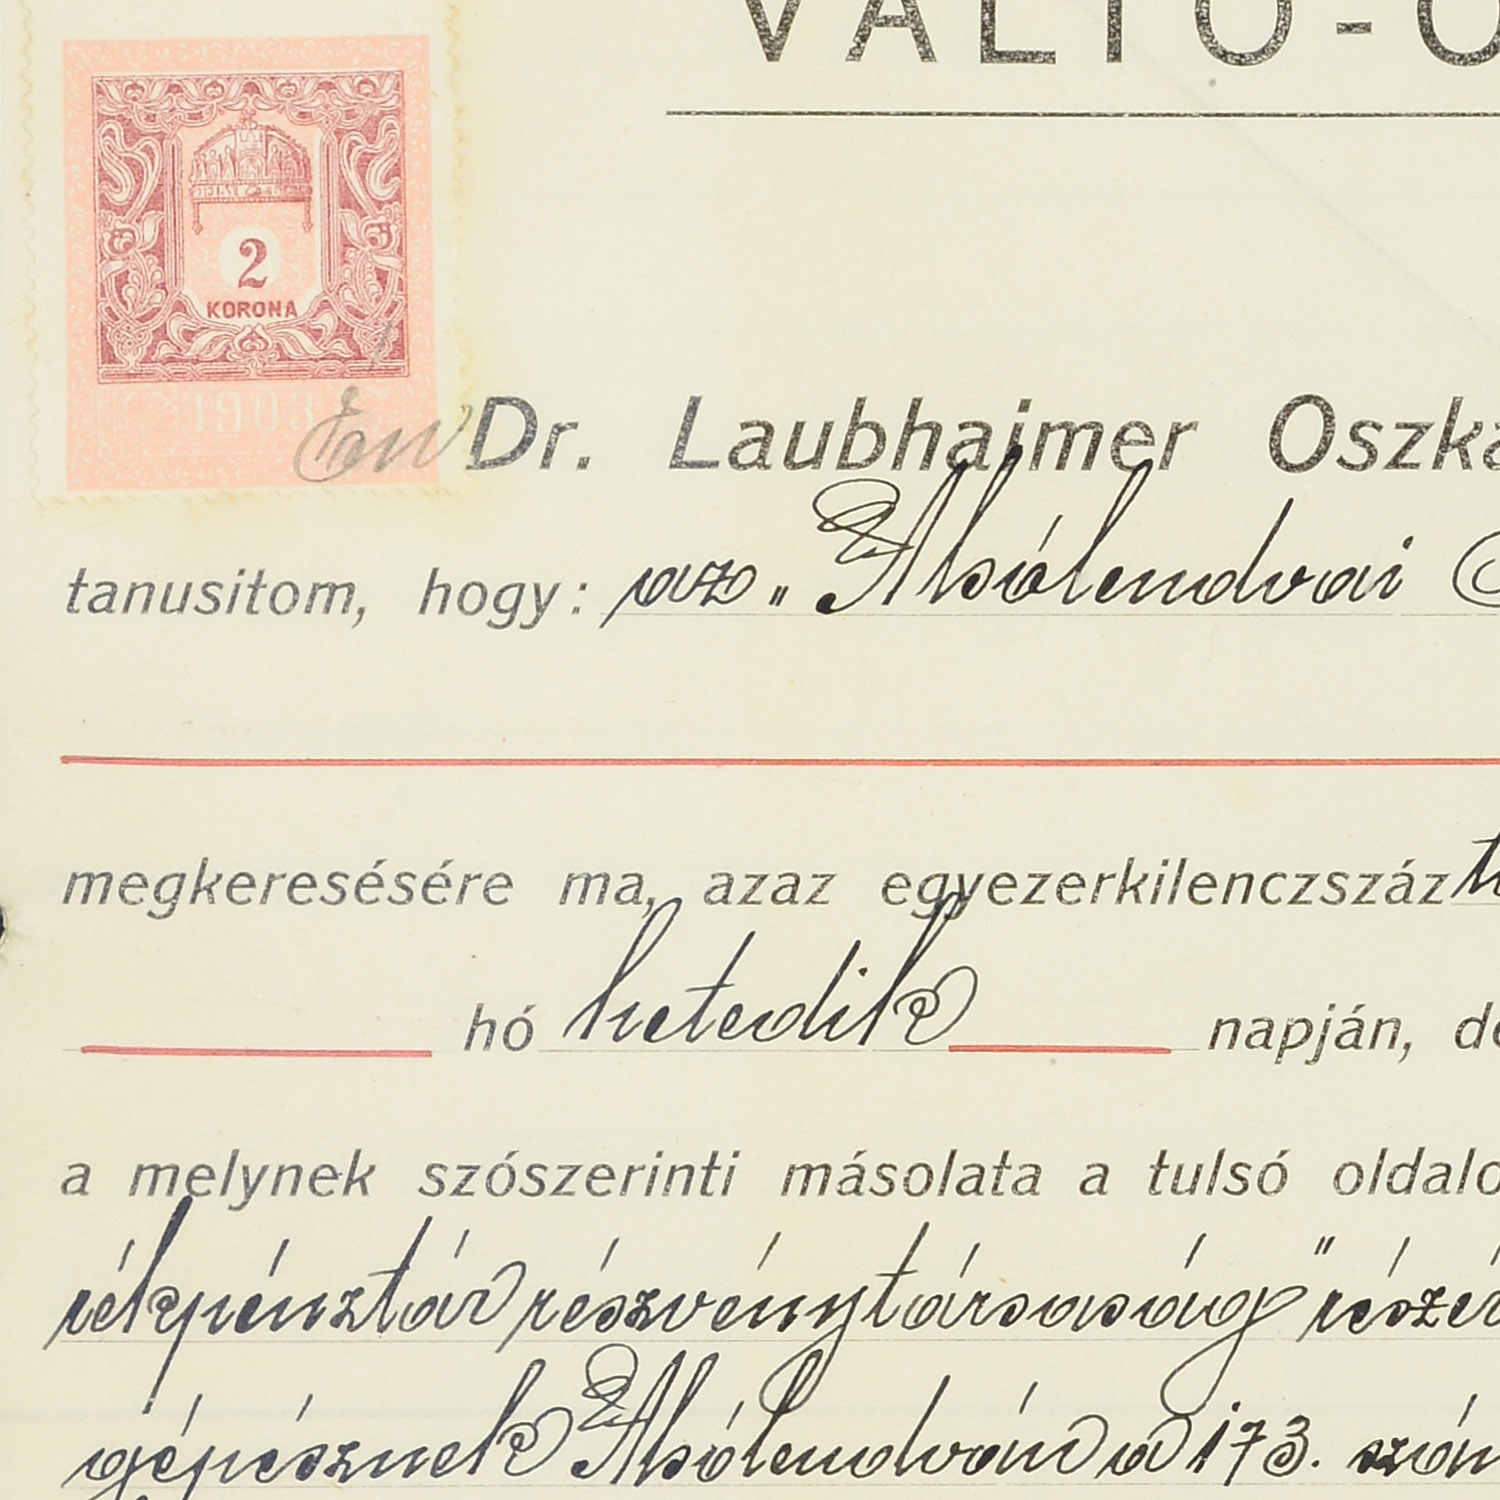 VÁLTÓ-Ó
2
KORONA
1903
Dr. Laubhaimer Oszká
tanusitom, hogy: az „Alsólendvai
megkeresésére ma, azaz egyezerkilenczszáz
hó hetedik napján, dé
a melynek szószerinti másolata a tulsó oldalo
rékpénztár részvénytársaság" részér
gépésznek Alsólendván a 173. szám